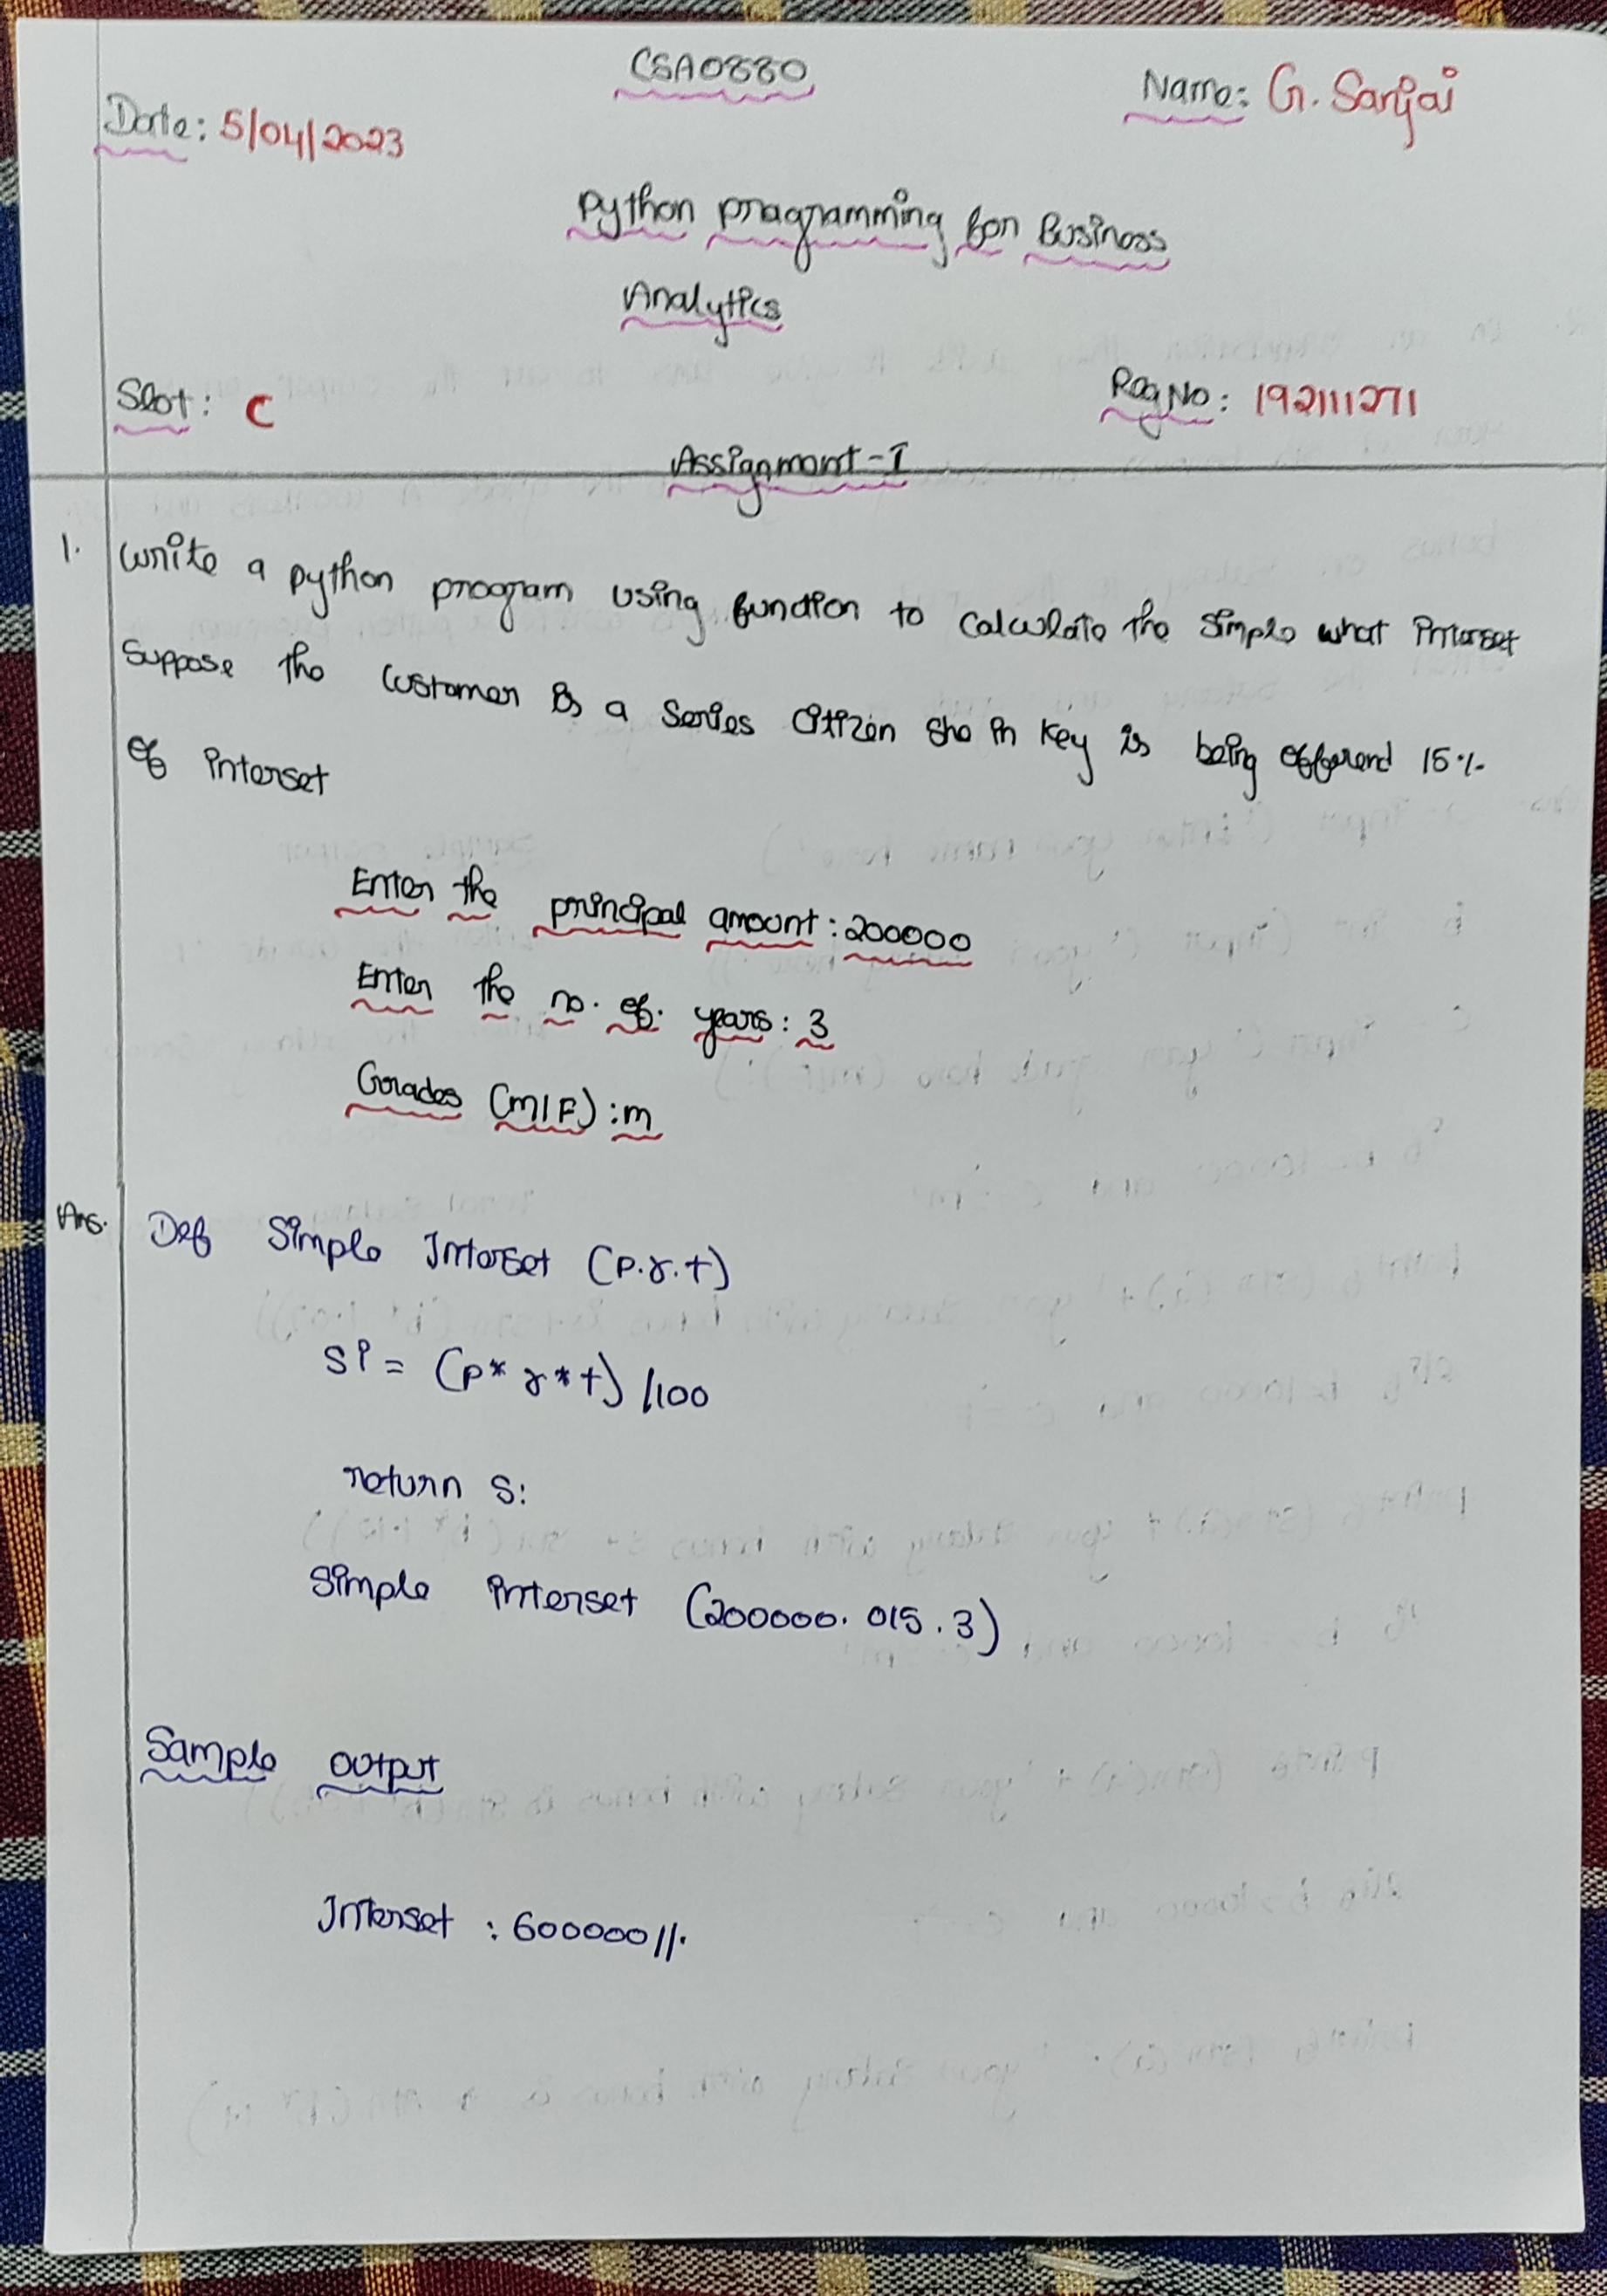 CSA0880
Name: G. Sanjai
Date: 5/04/2023
Python programming for Business
Analytics
Slot: C
Reg No: 192111271
Assignment-I
1. write a python program using function to calculate the simple what interset
suppose the customer is a series citizen she in key is being offerend 15%
of interset
Enter the principal amount: 200000
Enter the no. of. years: 3
Gorades (m/F): m
Ans. Def Simple Interset (p.r.t)
si = (p* r *t) /100
return s:
Simple interset (200000. 015. 3)
Sample output
Interset : 600000//.